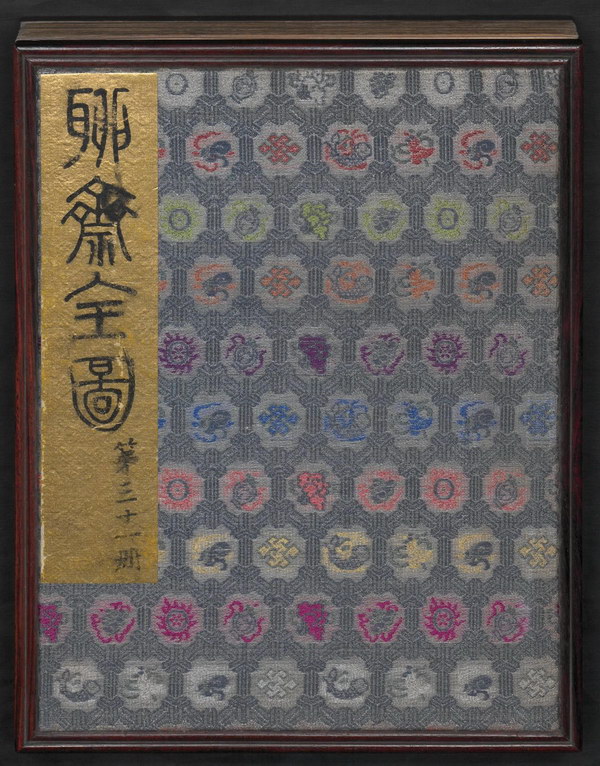 聊齋全圖
第三十一册